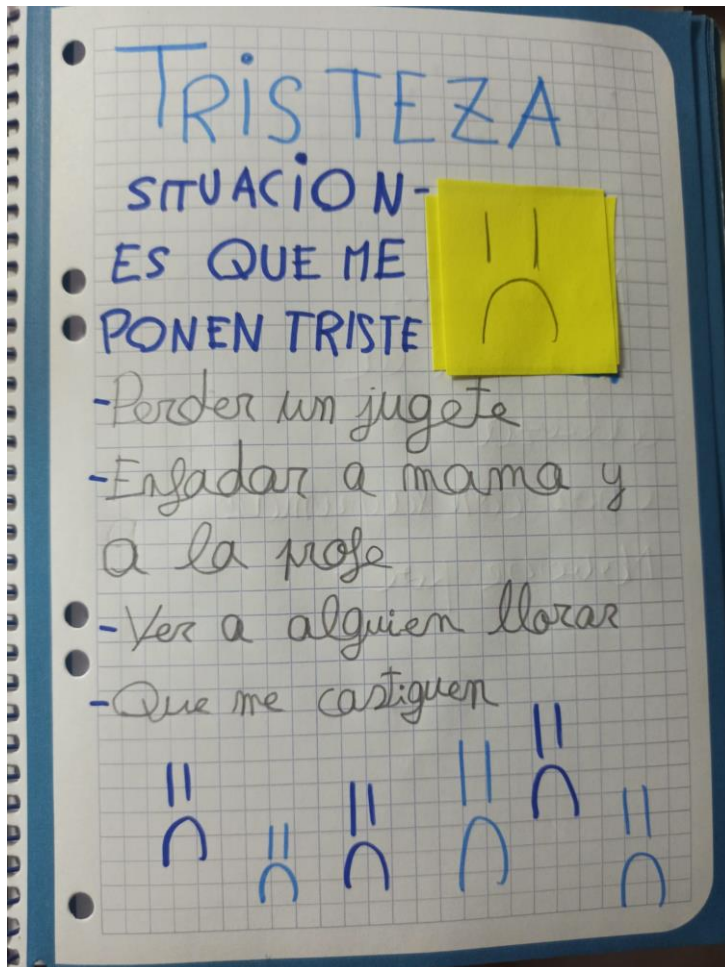 TRISTEZA
SITUACION-
ES QUE ME
PONEN TRISTE
-Perder un jugete
-Enfadar a mama y
a la profe
-Ver a alguien llorar
-Que me castiguen